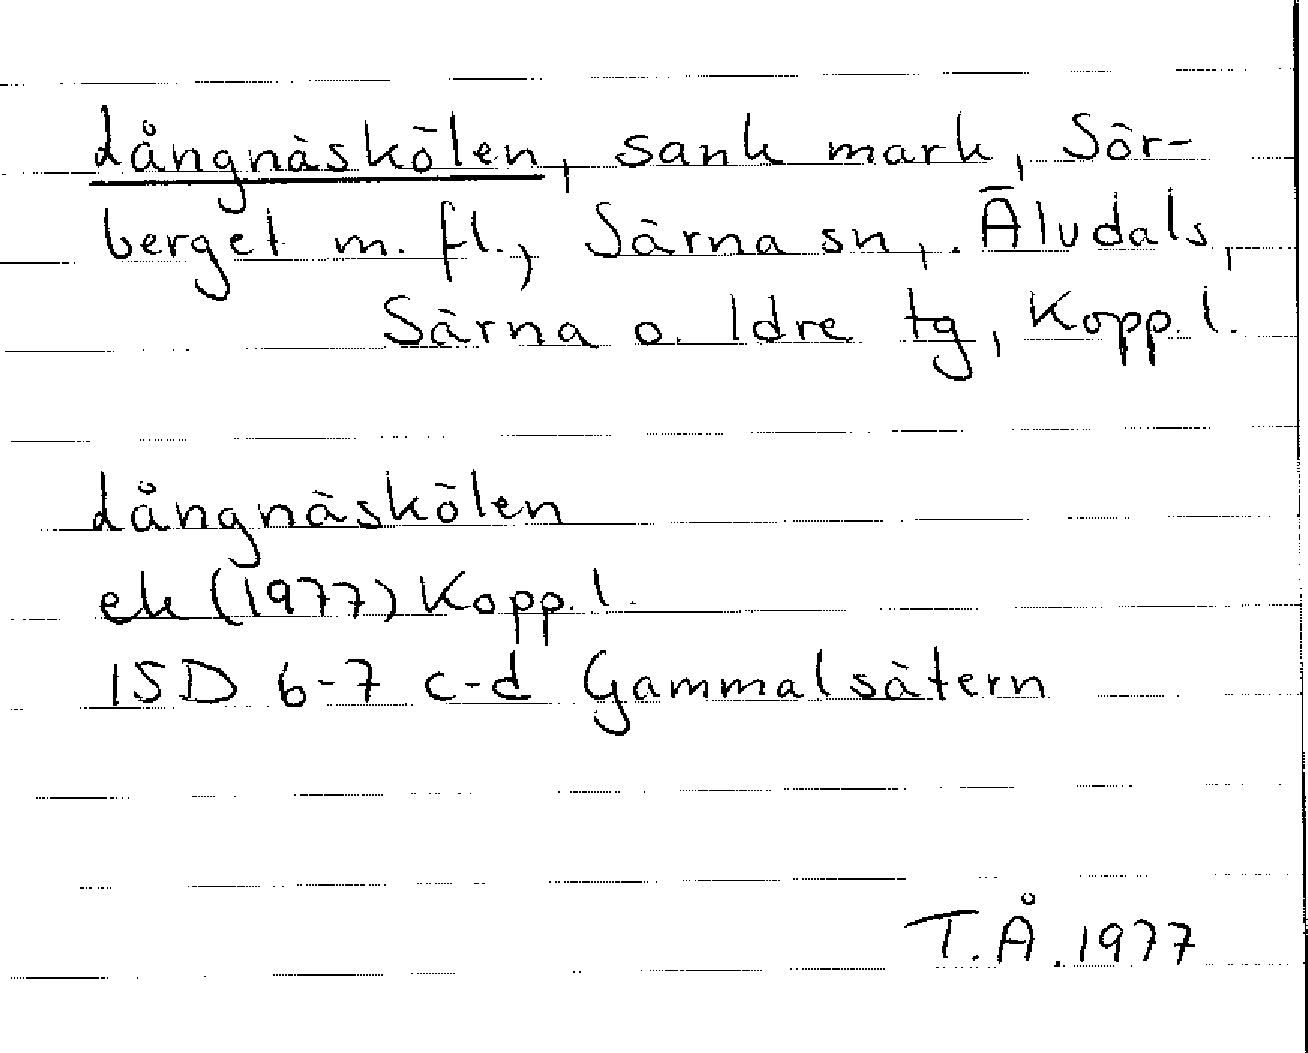 Långnäskölen, sank mark, Sör-
berget m. fl., Särna sn, Älvdals,
Särna o. Idre tg, Kopp. l.
Långnäskölen
ek (1977) Kopp. l.
15D 6-7 c-d Gammalsätern
T.Å. 1977